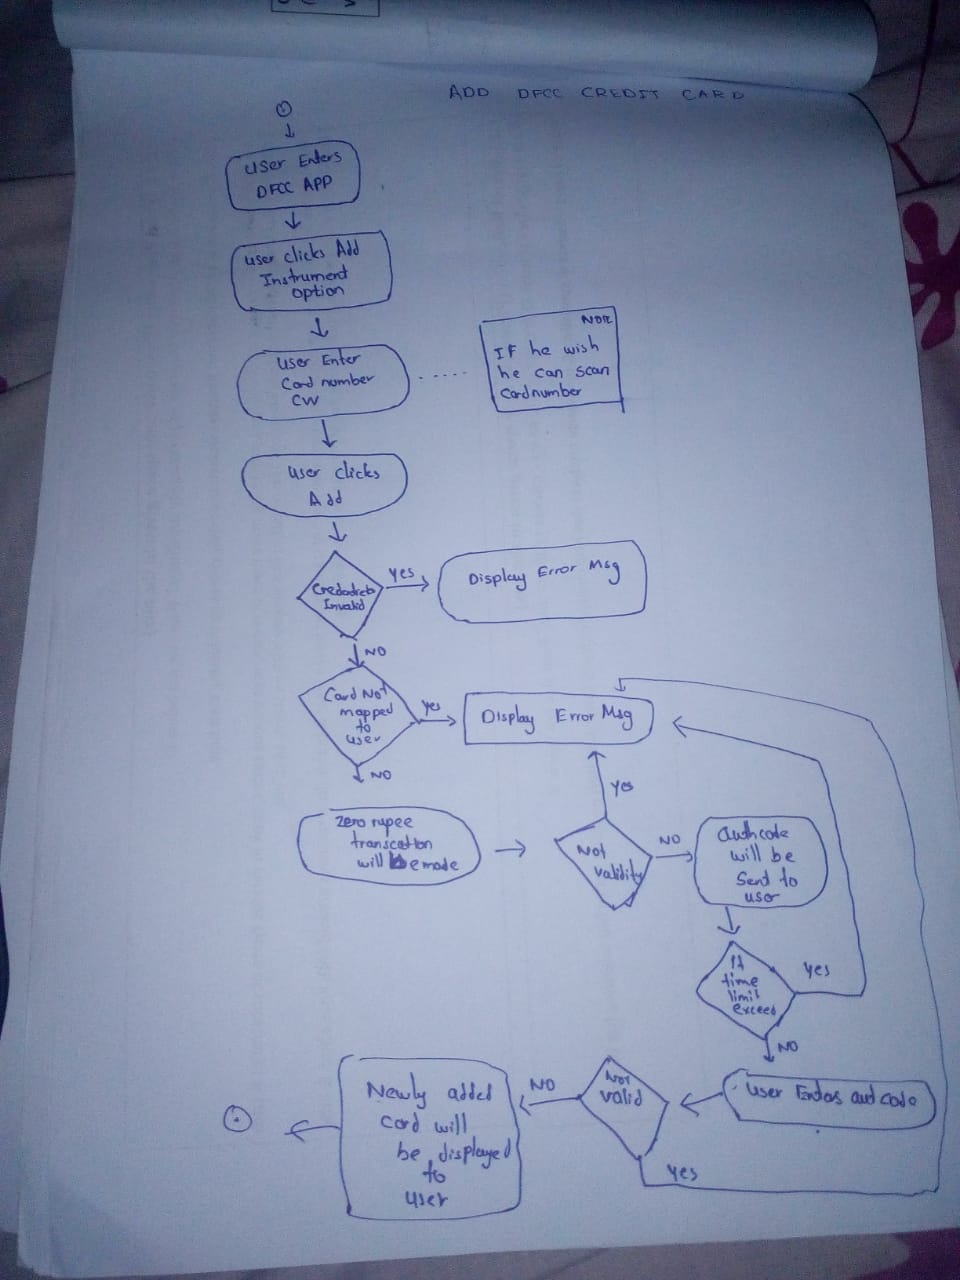 ADD DFCC CREDIT CARD
User Enters
DFCC APP
user clicks Add
Instrument
option
User Enter
Card number
CVV
NOTE
IF he wish
he can scan
Cardnumber
User clicks
Add
Invalid
Yes
Display Error Msg
NO
Card Not
mapped
to
user
Yes
Display Error Msg
NO
Zero rupee
transcation
will Be made
Yes
Not
validity
NO
Authcode
will be
Sent to
user
If
time
limit
exceed
Yes
NO
User Enters aut code
Not
valid
NO
Yes
Newly added
card will
be displayed
to
user